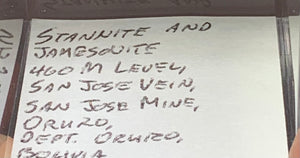 STANNITE AND
JAMESONITE
460 M LEVEL,
SAN JOSE VEIN,
SAN JOSE MINE,
ORURO,
DEPT. ORURO,
BOLIVIA